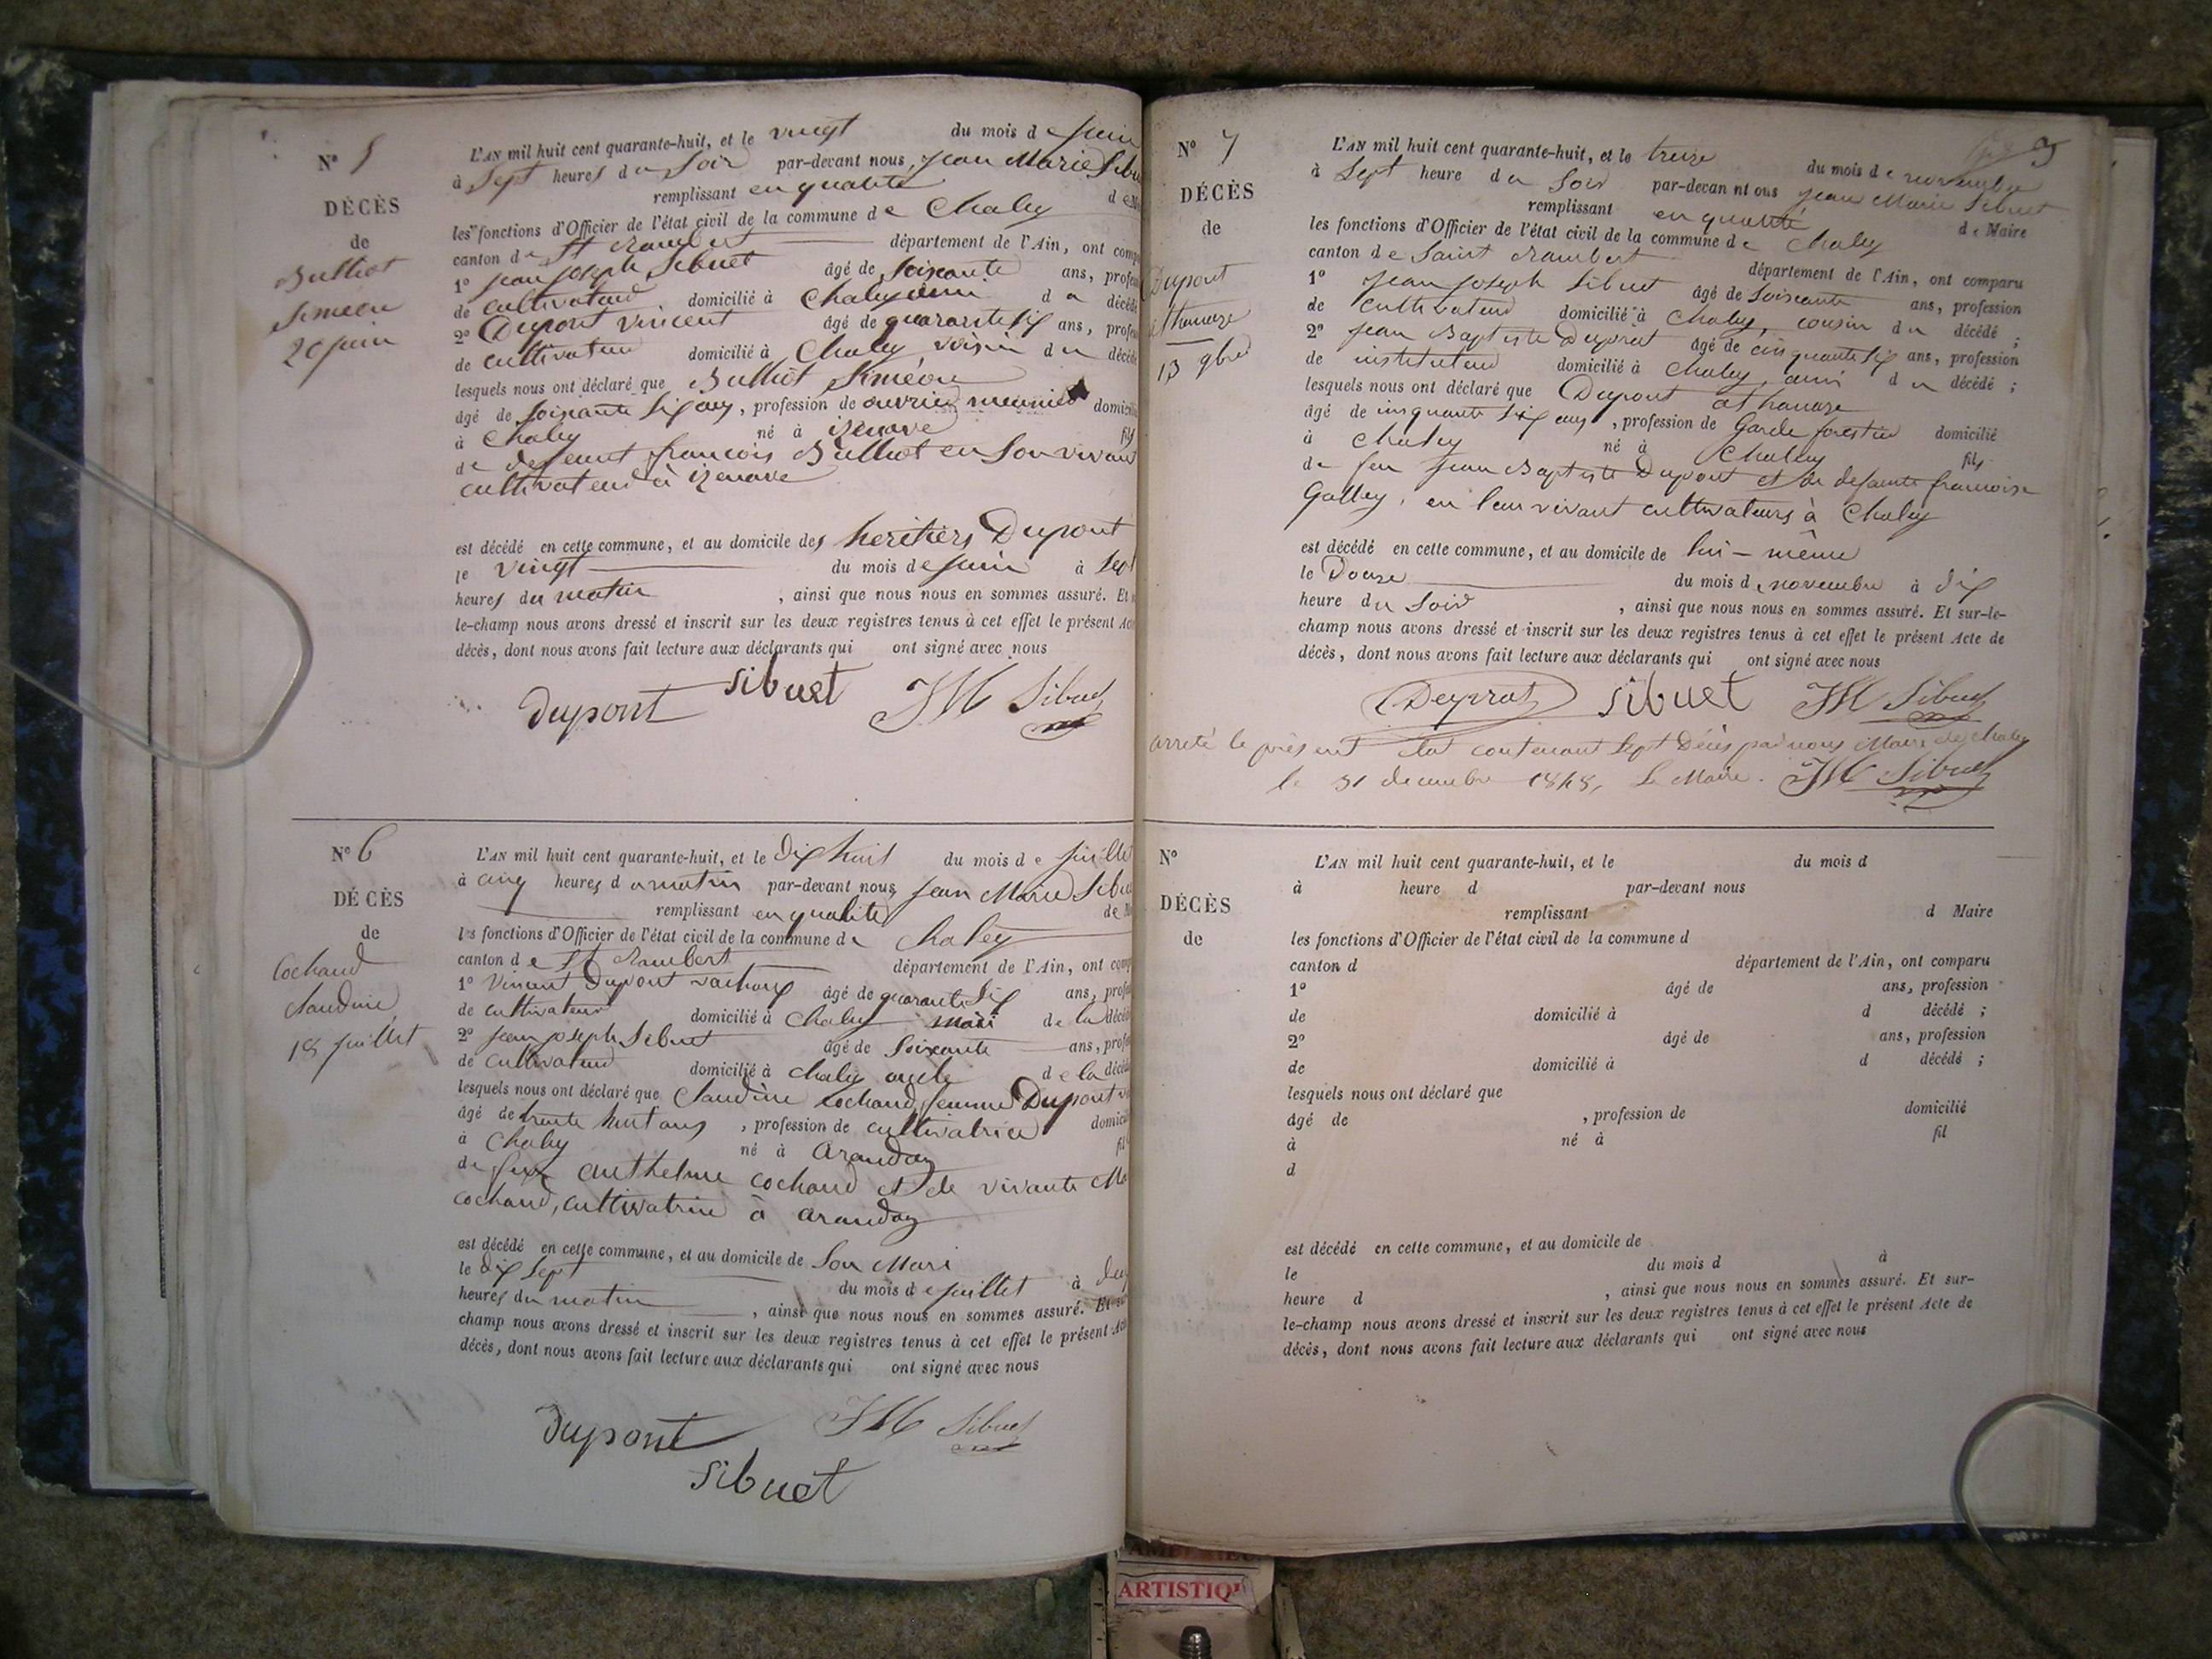 N° 5
DÉCÈS
de
Bulliot
Siméon
20 juin
L'AN mil huit cent quarante-huit, et le vingt du mois de juin
à Sept heures du Soir par-devant nous, Jean Marie Sibu
remplissant en qualité de M
les fonctions d'Officier de l'état civil de la commune de Chaley
canton de St Rambert département de l'Ain, ont comp
1° jean joseph Sibuet âgé de Soixante ans, profes
de cultivateur domicilié à Chaley ami du décéd
2° Dupont Vincent âgé de quarante six ans, profes
de cultivateur domicilié à Chaley, voisin du décéd
lesquels nous ont déclaré que Bulliot Siméon
âgé de Soixante Six ans, profession de ouvrier meunier domici
à Chaley né à izenave fils
de defeunt françois Bulliot en Son vivant
cultivateur à izenave
est décédé en cette commune, et au domicile des heritiers Dupont
le vingt du mois de juin à Sept
heures du matin, ainsi que nous nous en sommes assuré. Et
le-champ nous avons dressé et inscrit sur les deux registres tenus à cet effet le présent Ac
décès, dont nous avons fait lecture aux déclarants qui ont signé avec nous
dupont sibuet JM Sibuet
N° 6
DÉCÈS
de
Cochand
Claudine
18 juillet
L'AN mil huit cent quarante-huit, et le Dix huit du mois de juillet
à cinq heures du matin par-devant nous, Jean Marie Sibu
remplissant en qualité de M
les fonctions d'Officier de l'état civil de la commune de Chaley
canton de St Rambert département de l'Ain, ont comp
1° Vincent Dupont âgé de quarante Six ans, profes
de cultivateur domicilié à Chaley mari de la décéd
2° jean joseph Sibuet âgé de Soixante ans, profes
de cultivateur domicilié à Chaley oncle de la décéd
lesquels nous ont déclaré que Claudine Cochand, femme Dupont
âgé de trente huit ans, profession de cultivatrice domici
à Chaley né à Arandaz fil
de feu anthelme cochand et de vivante Ma
cochand, cultivatrice à arandaz
est décédé en cette commune, et au domicile de Son Mari
le dix Sept du mois de juillet à deux
heures du matin, ainsi que nous nous en sommes assuré. Et su
champ nous avons dressé et inscrit sur les deux registres tenus à cet effet le présent Ac
décès, dont nous avons fait lecture aux déclarants qui ont signé avec nous
dupont JM Sibuet
sibuet
N° 7
DÉCÈS
de
Dupont
athanaze
13 9bre
L'AN mil huit cent quarante-huit, et le treize du mois de novembre
à Sept heure du Soir par-devan nt ous Jean Marie Sibuet
remplissant en qualité de Maire
les fonctions d'Officier de l'état civil de la commune de Chaley
canton de Saint Rambert département de l'Ain, ont comparu
1° Jean joseph Sibuet âgé de Soixante ans, profession
de cultivateur domicilié à Chaley, cousin du décédé;
2° Jean Baptiste Duprat âgé de cinquante Six ans, profession
de instituteur domicilié à Chaley, ami du décédé;
lesquels nous ont déclaré que Dupont athanaze
âgé de cinquante Six ans, profession de Garde forestier domicilié
à Chaley né à Chaley fils
de feu Jean Baptiste Dupont et de defunte francoise
Galley, en leur vivant cultivateurs à Chaley
est décédé en cette commune, et au domicile de lui-même
le Douze du mois de novembre à dix
heure du Soir, ainsi que nous nous en sommes assuré. Et sur-le-
champ nous avons dressé et inscrit sur les deux registres tenus à cet effet le présent Acte de
décès, dont nous avons fait lecture aux déclarants qui ont signé avec nous
Duprat sibuet JM Sibuet
arreté le présent état contenant Sept Décès par nous Maire de Chaley
le 31 decembre 1848, Le Maire. JM Sibuet
N°
DÉCÈS
de
L'AN mil huit cent quarante-huit, et le du mois d
à heure d par-devant nous
remplissant d Maire
les fonctions d'Officier de l'état civil de la commune d
canton d département de l'Ain, ont comparu
1° âgé de ans, profession
de domicilié à d décédé;
2° âgé de ans, profession
de domicilié à d décédé;
lesquels nous ont déclaré que
âgé de, profession de domicilié
à né à fil
d
est décédé en cette commune, et au domicile de
le du mois d à
heure d, ainsi que nous nous en sommes assuré. Et sur-
le-champ nous avons dressé et inscrit sur les deux registres tenus à cet effet le présent Acte de
décès, dont nous avons fait lecture aux déclarants qui ont signé avec nous
ARTISTIQ